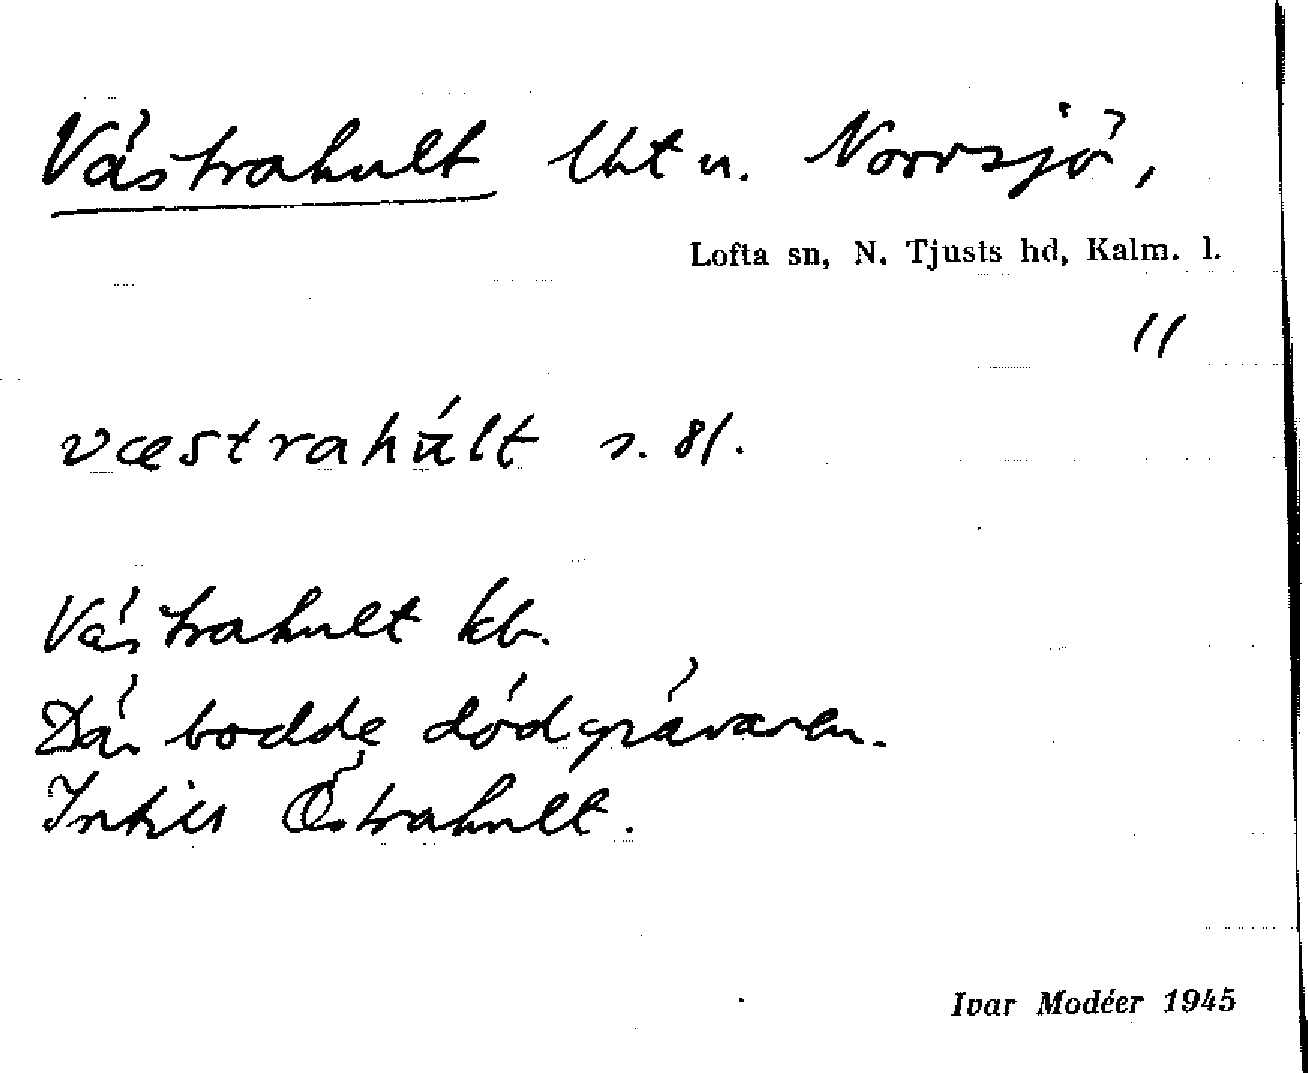 Västrahult lht u. Norrsjö,
Lofta sn, N. Tjusts hd, Kalm. l.
11
væstrahúlt s. 81.
Västrahult kb.
Där bodde dödgrävaren.
Intill Östrahult.
Ivar Modéer 1945